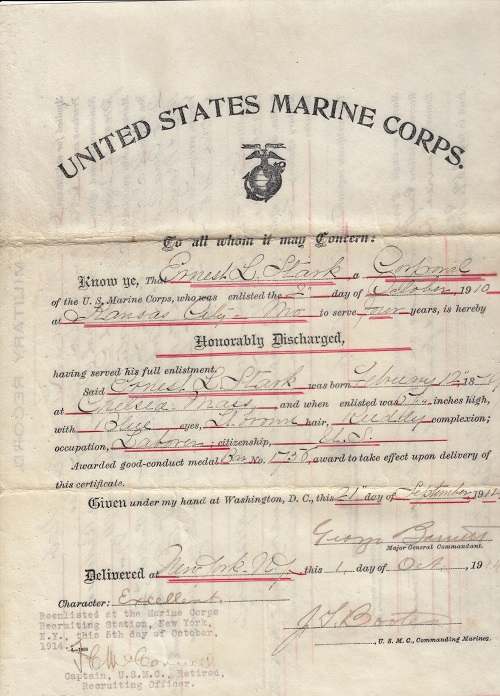 UNITED STATES MARINE CORPS.
To all whom it may Concern:
Know ye, That Ernest L. Stark a Corporal
of the U. S. Marine Corps, who was enlisted the day of October 1910
at Kansas City - Mo to serve four years, is hereby
Honorably Discharged,
having served his full enlistment.
Said Ernest L. Stark was born February 12" 18
at Chelsea Mass and when enlisted was inches high,
with Blue eyes, hair, Ruddy complexion;
occupation, Laborer; citizenship, U.S.
Awarded good-conduct medal No. award to take effect upon delivery of
this certificate.
Given under my hand at Washington, D. C., this 21" day of September, 1914
George Barnett
Major General Commandant.
Delivered at New York N.Y., this 1 day of Oct., 19
Character: Excellent
Reenlisted at the Marine Corps
Recruiting Station, New York,
N.Y., this 5th day of October,
1914.
, U. S. M. C., Commanding Marines.
Captain, U.S.M.C., Retired,
Recruiting Officer.
MILITARY RECORD